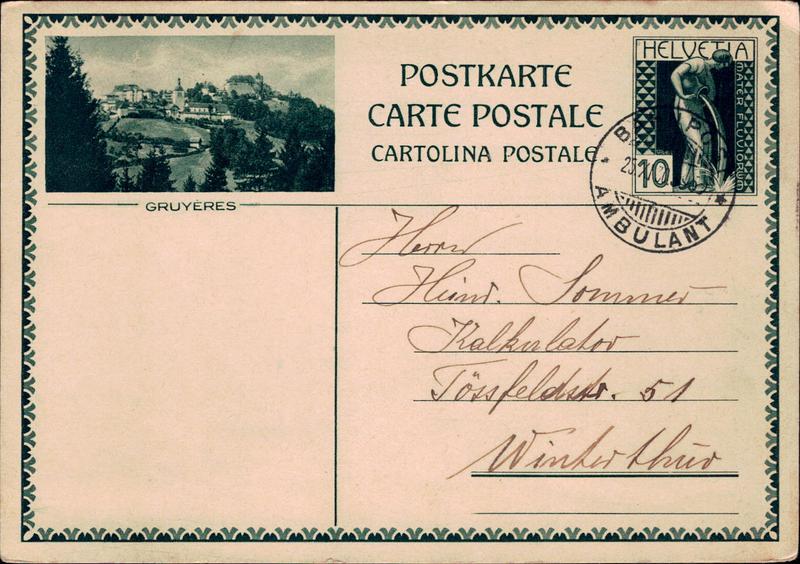 POSTKARTE
CARTE POSTALE
CARTOLINA POSTALE
HELVETIA
MATER FLUVIORUM
10
AMBULANT
GRUYÈRES
Herrn
Heinr. Sommer
Kalkulator
Tössfeldstr. 51
Winterthur